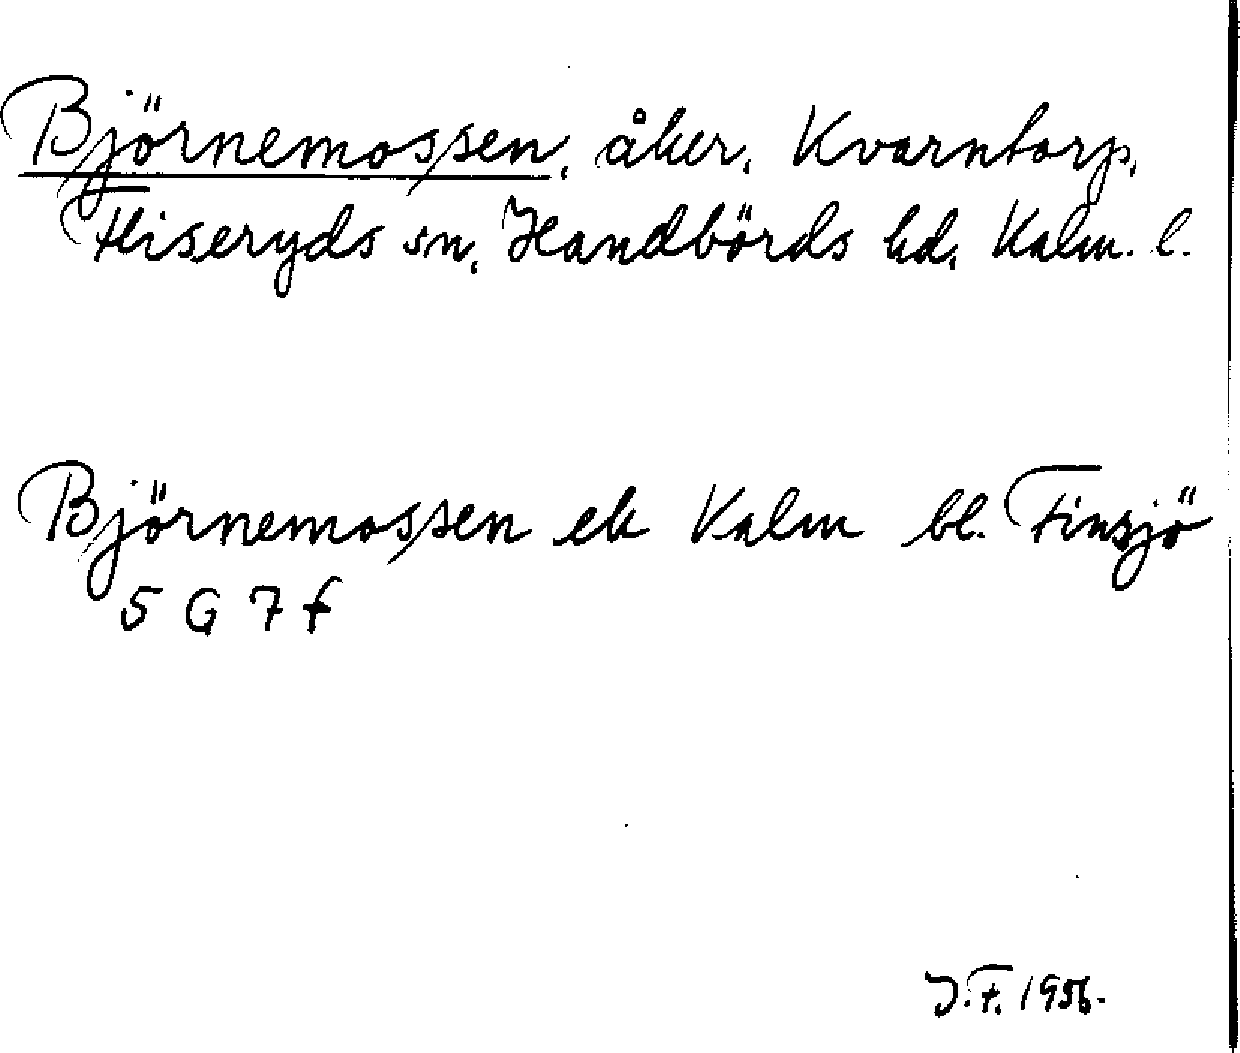 Björnemossen, åker, Kvarntorp,
Fliseryds sn, Handbörds hd, Kalm. l.
Björnemossen ek Kalm bl. Finsjö
5 G 7 f
J.F. 1956.